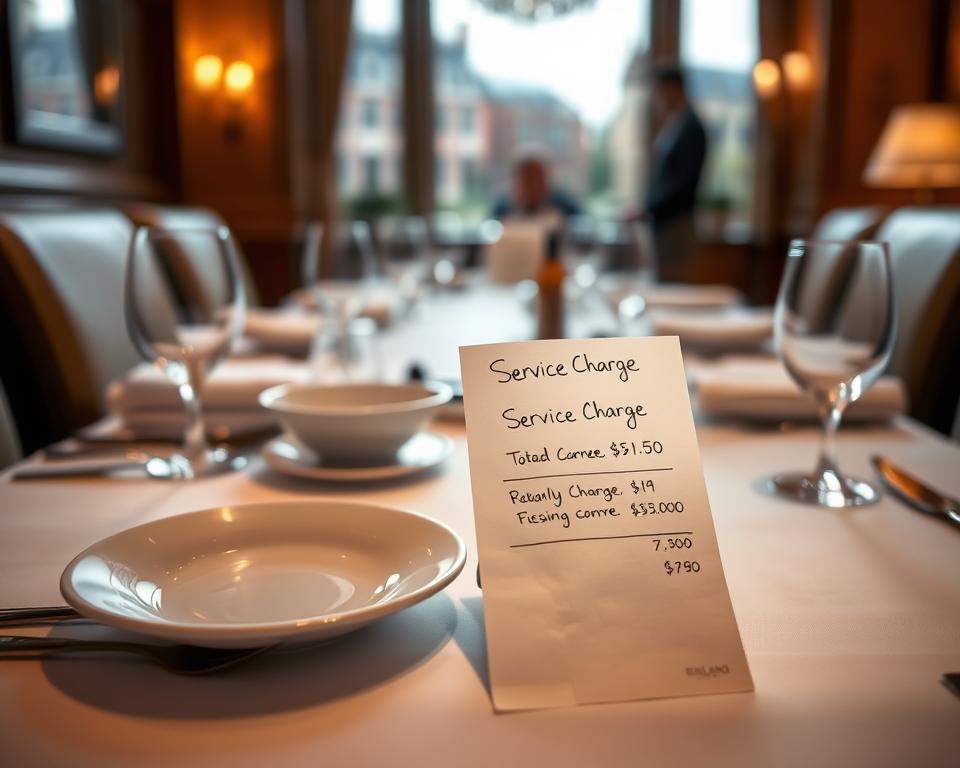 Service Charge
Service Charge
Total Carree $51.50
Charge. $19
Fissing conve $53.000
7,500
$790